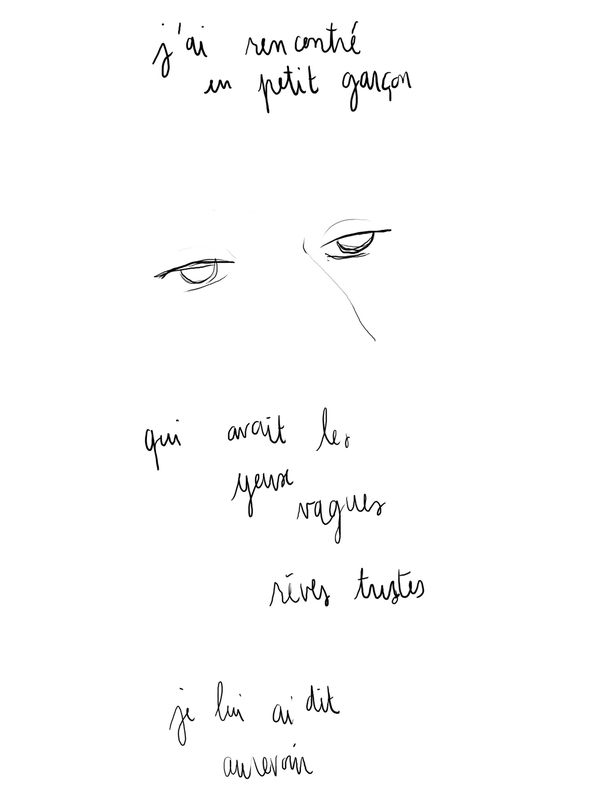 j'ai rencontré
un petit garçon
qui avait les
yeux
vagues
rêves tristes
je lui ai dit
au revoir